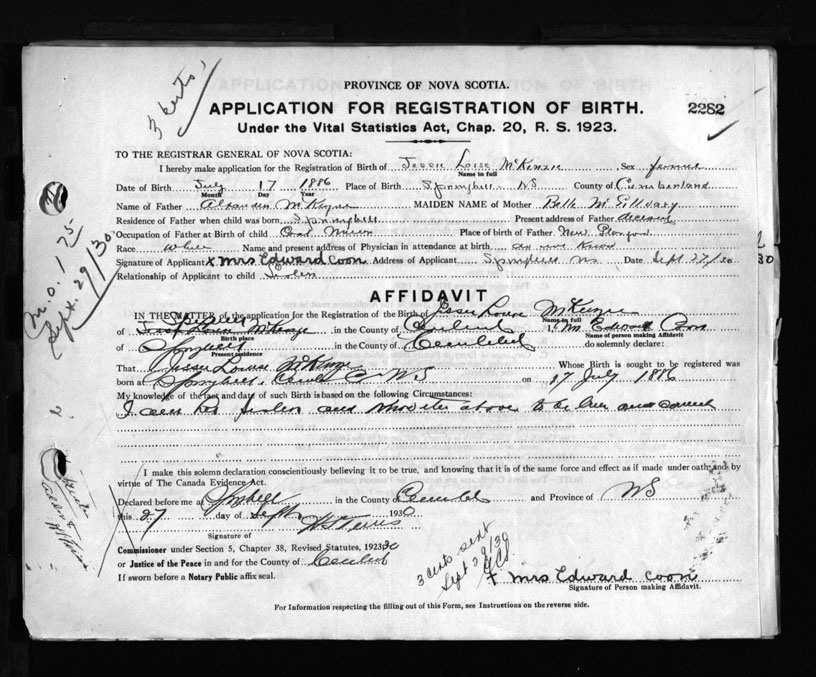 3 certs
PROVINCE OF NOVA SCOTIA.
APPLICATION FOR REGISTRATION OF BIRTH.
2282
Under the Vital Statistics Act, Chap. 20, R. S. 1923.
TO THE REGISTRAR GENERAL OF NOVA SCOTIA:
I hereby make application for the Registration of Birth of Jessie Loise McKenzie Sex female
Name in full
Date of Birth July 17 1886 Place of Birth Springhill NS County of Cumberland
Month Day Year
Name of Father McKenzie MAIDEN NAME of Mother Belle McGillvary
Residence of Father when child was born Springhill Present address of Father deceased
Occupation of Father at Birth of child Coal Miner Place of birth of Father New Glasgow
Race White Name and present address of Physician in attendance at birth
Signature of Applicant x Mrs Edward Coon Address of Applicant Springhill NS Date Sept 27/30
Relationship of Applicant to child Sister
M.O. 1 75
Sept. 29/30
AFFIDAVIT
IN THE MATTER of the application for the Registration of the Birth of Jessie Louise McKenzie
Name in full
of Springhill in the County of I, Mrs Edward Coon
Birth place Name of person making Affidavit
of Springhill in the County of do solemnly declare:
Present residence
That Jessie Louise McKenzie Whose Birth is sought to be registered was
born at Springhill, NS on 17 July 1886
My knowledge of the fact and date of such Birth is based on the following Circumstances:
I am her sister and know the above to be true and correct
I make this solemn declaration conscientiously believing it to be true, and knowing that it is of the same force and effect as if made under oath and by
virtue of The Canada Evidence Act.
Declared before me at in the County of and Province of NS
this 27 day of Sept 1930
Signature of
Commissioner under Section 5, Chapter 38, Revised Statutes, 1923
or Justice of the Peace in and for the County of
If sworn before a Notary Public affix seal.
3 certs sent
Sept 30/30
x Mrs Edward Coon
Signature of Person making Affidavit.
For Information respecting the filling out of this Form, see Instructions on the reverse side.